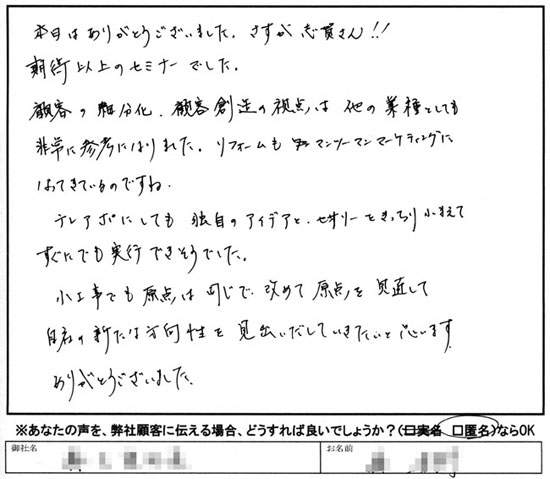 本日はありがとうございました。さすが志賀さん!!
期待以上のセミナーでした。
顧客の細分化、顧客創造の視点は他の業種としても
非常に参考になりました。リフォームもマンツーマンマーケティングに
なってきているのですね。
テレアポにしても独自のアイデアと、セオリーときっちりふまえて
すぐにでも実行できそうでした。
小工事でも原点は同じで、改めて原点を見直して
自社の新たな方向性を見出いだしていきたいと思います。
ありがとうございました。
※あなたの声を、弊社顧客に伝える場合、どうすれば良いでしょうか?(□実名 □匿名)ならOK
御社名 お名前